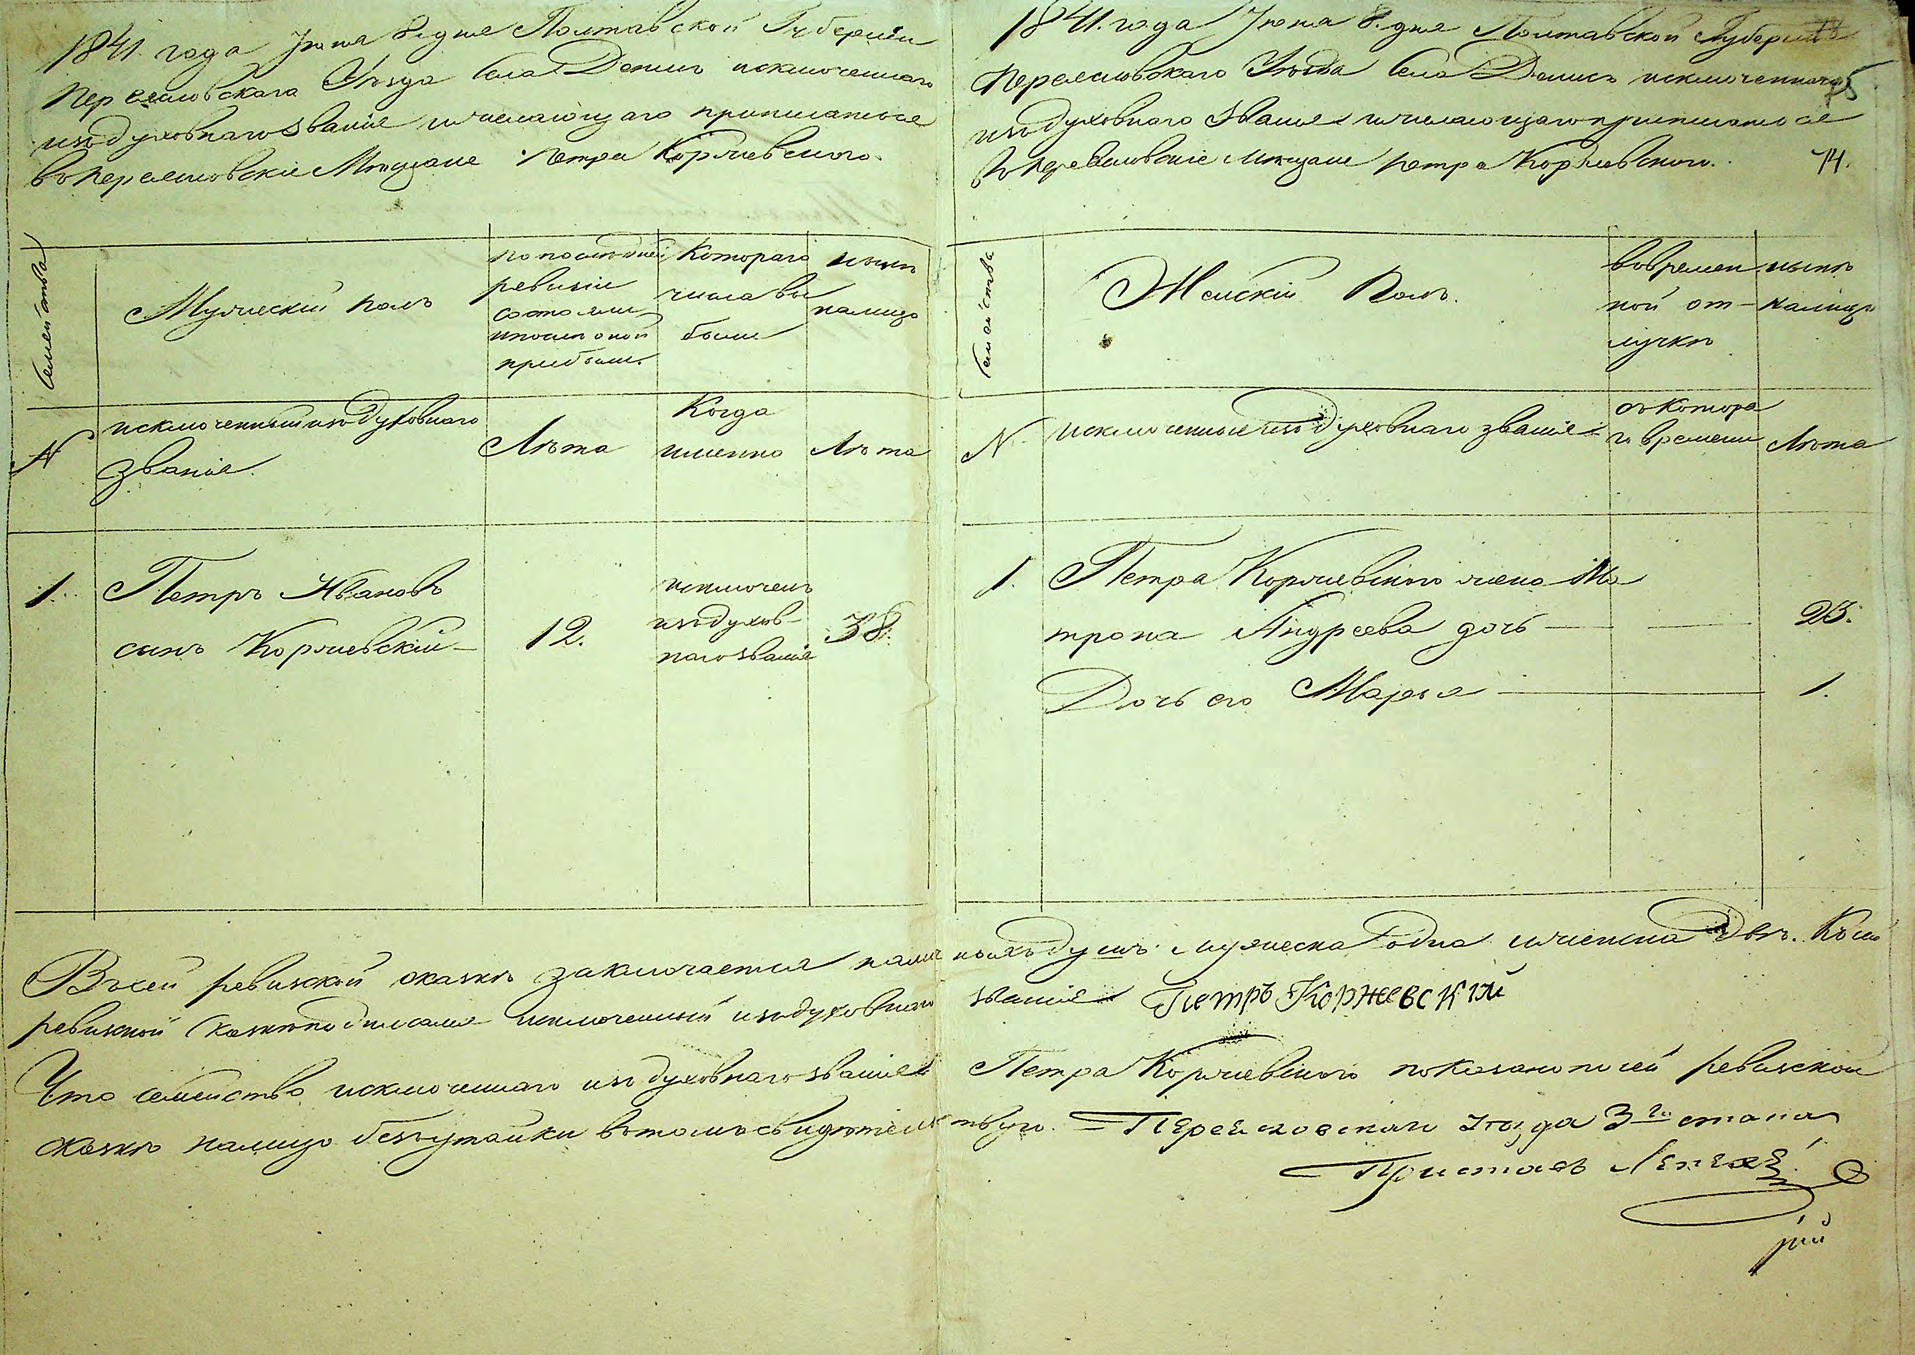 1841. года Июня 8. дня Полтавской Губерніи
Переяславскаго Уѣзда Села Денисъ исключеннаго
изъ духовнаго званія и желающаго приписаться
въ Переяславскіе Мѣщане Петра Коржевского.
Семейства
Мужескій полъ
по последней
ревизіи
состояло
и после оной
прибыло.
Котораго
числа вы
были
нынѣ
налицо
N
исключенный изъ духовнаго
званія.
Лѣта
Когда
именно
Лѣта
1.
Петръ Ивановъ
сынъ Коржевскій
12.
исключенъ
изъ духов-
наго званія
38.
1841. года Июня 8. дня Полтавской Губерніи
Переяславскаго Уѣзда Села Денисъ исключеннаго
75
изъ духовнаго званія и желающаго приписаться
въ Переяславскіе Мѣщане Петра Коржевского.
74.
Семейства
Женскій Полъ.
во времен
ной от-
лучкѣ
нынѣ
налицо
N
исключенные изъ духовнаго званія
съ котора
го времени
Лѣта
1.
Петра Коржевского жена Ма
трона Андреева дочь
23.
Дочь его Марья
1.
Въ сей ревизской сказкѣ заключается наличныхъ душъ мужеска одна и женска двѣ. Къ сей
ревизской сказкѣ подписался исключенный изъ духовнаго званія Петръ Коржевскій
Что семейство исключеннаго изъ духовнаго званія Петра Коржевского показано по сей ревизской
сказкѣ налицо безъ утайки въ томъ свидѣтельствую. Переяславскаго уѣзда 3го стана
Приставъ